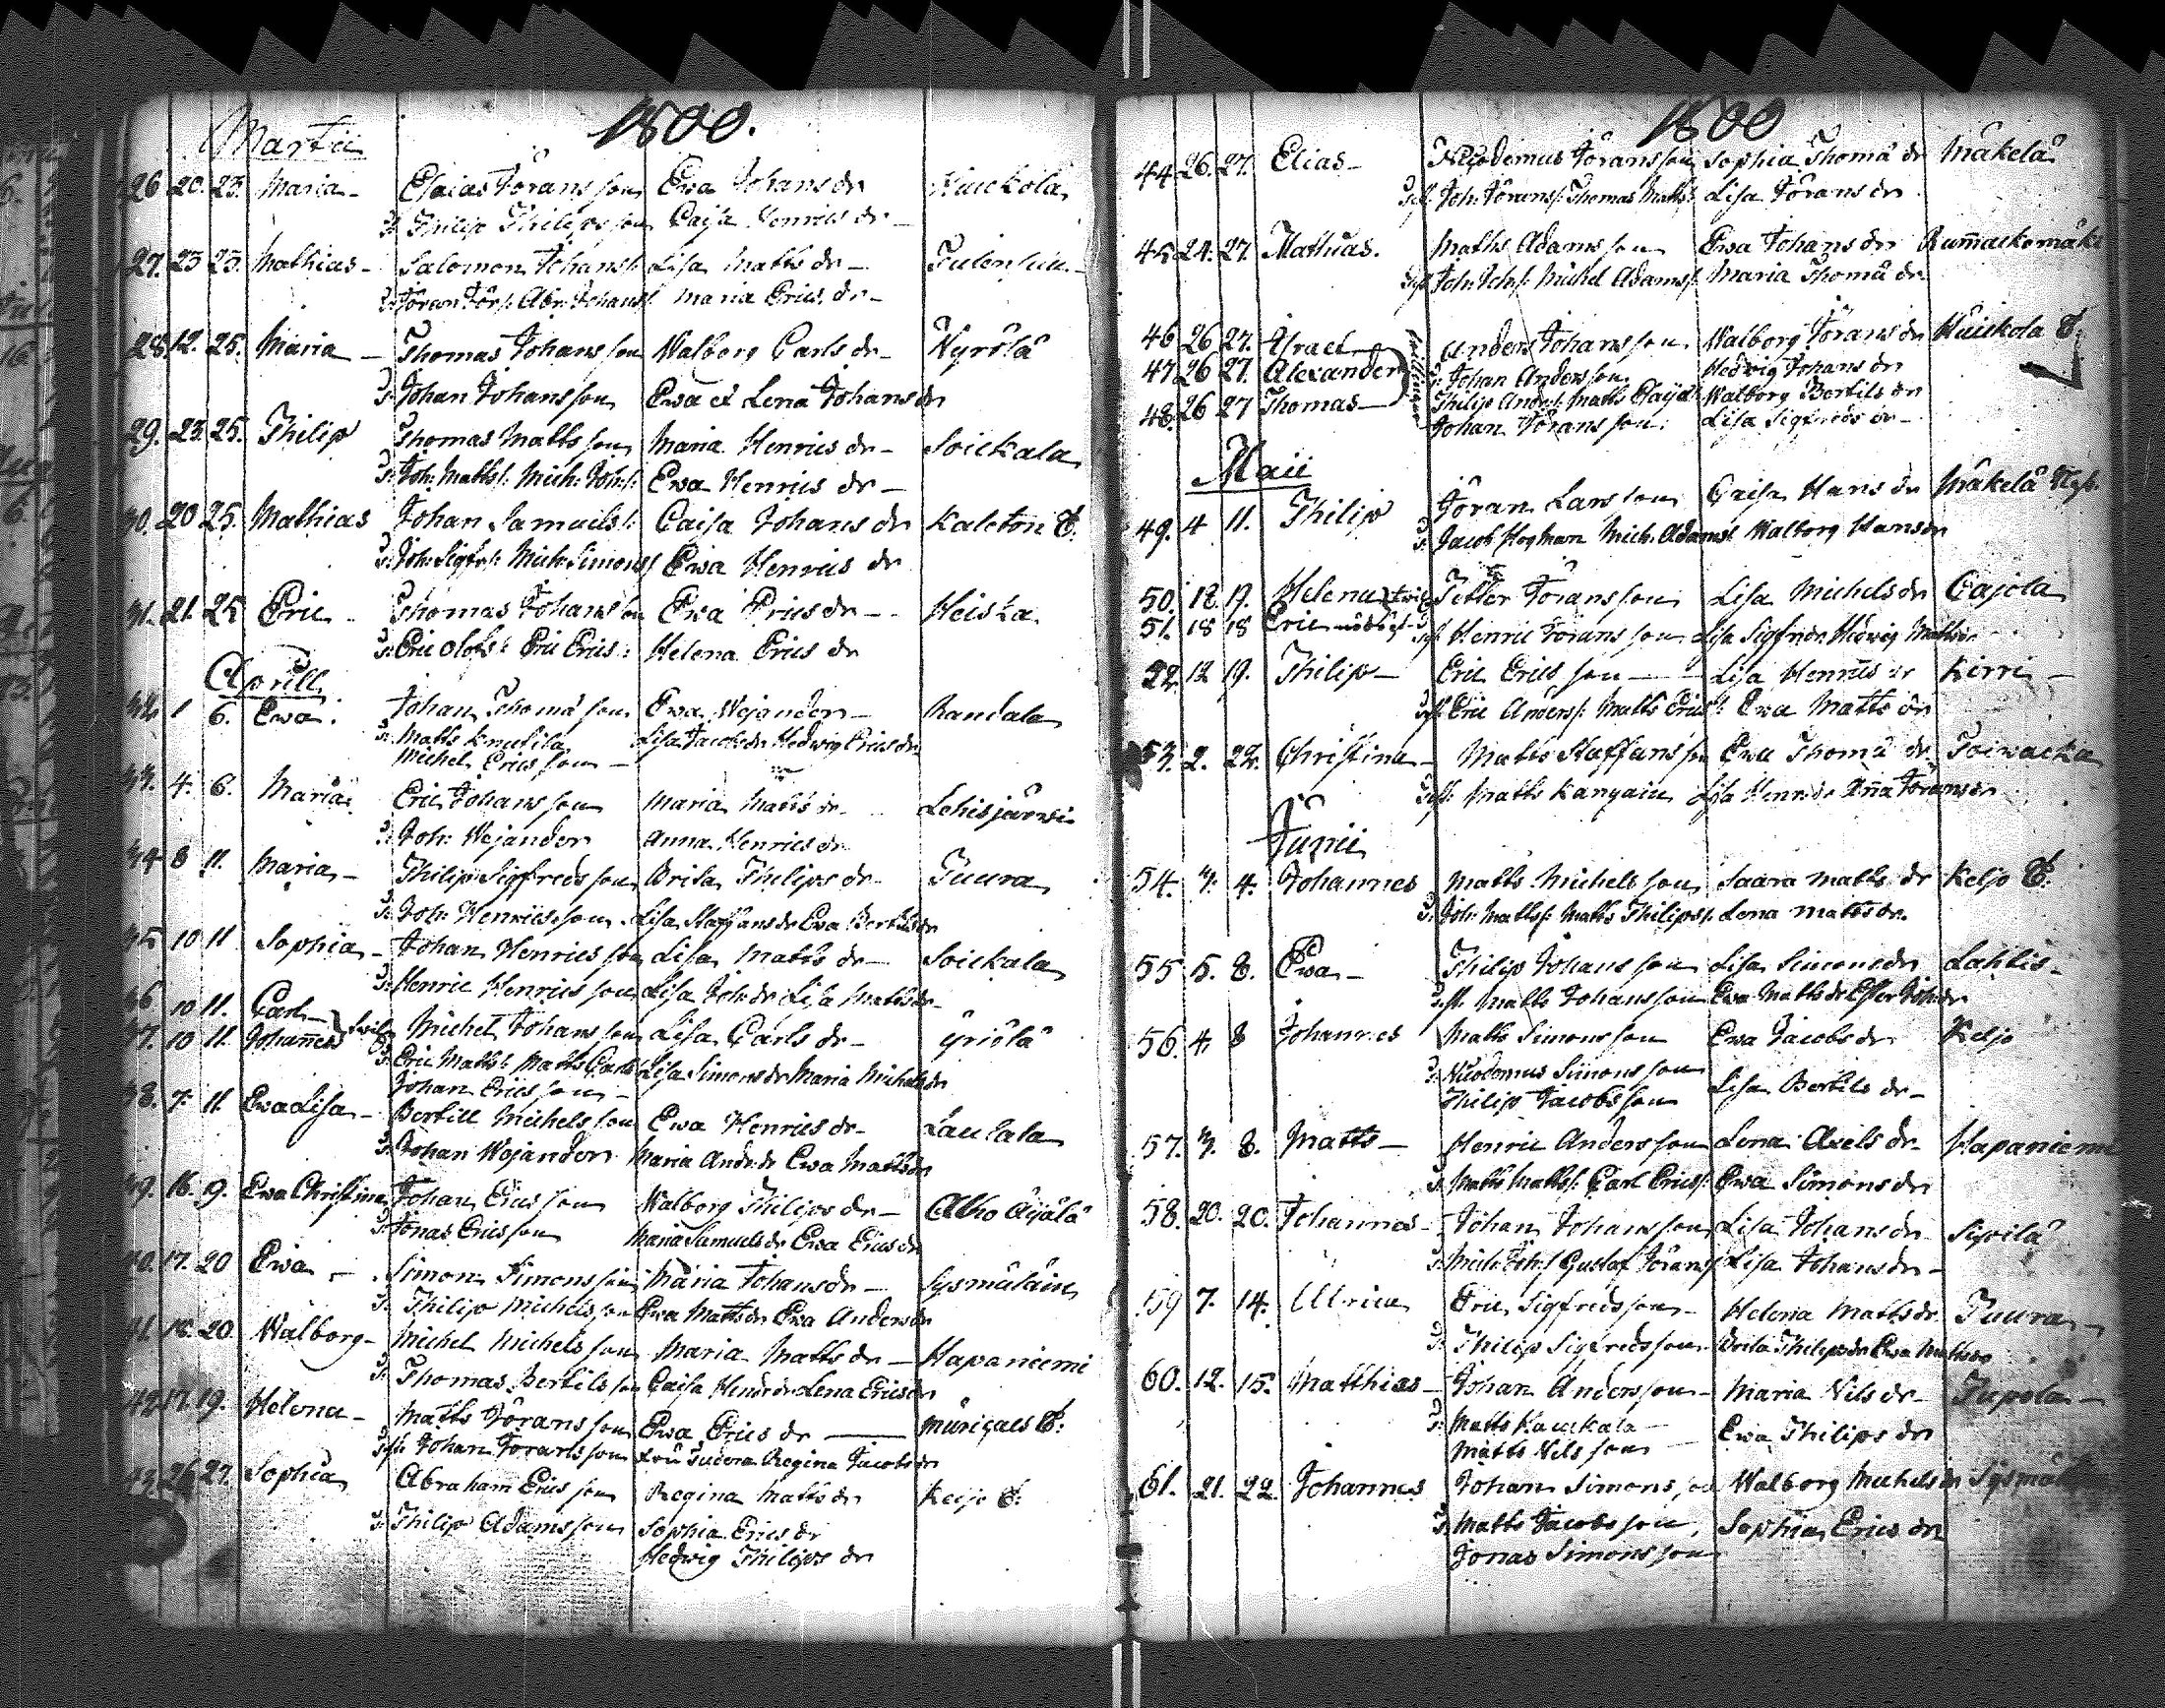 1800.
Martii
26 20. 23. Maria - Esaias Jörans son Ewa Johans dr Huickola
Philip Philips son Caisa Henrics dr -
27. 23 23. Mathias - Salomon Johans s: Lisa Matts dr -
Jöran Jör s: Abr: Johans s: Maria Erics dr -
28. 12. 25. Maria - Thomas Johans son Walborg Carls dr - Hyrölä
Johan Johans son Ewa et Lena Johans dr
29. 23. 25. Philip Thomas Matts son Maria Henrics dr - Soickala
Joh: Matts s: Mich: Joh: s: Ewa Henrics dr -
30. 20 25. Mathias Johan Samuels s: Caisa Johans dr Kaleton T:
Joh: Sigfr: s: Mich: Simons s: Ewa Henrics dr
31. 21. 25 Eric - Thomas Johans son Ewa Erics dr - Heiska
Eric Olofs s: Eric Erics s: Helena Erics dr
Aprill
32 1 6. Ewa. Johan Thomä son Ewa Wejander - Randala
Matts Knutila Lisa Jacobs dr Hedwig Erics dr
Michel Erics son -
33. 4. 6. Maria Eric Johans son Maria Matts dr - Lehisjärwi
Joh: Wejander Anna Henrics dr
34 8 11. Maria - Philip Sigfreds son Brita Philips dr - Tuura
Joh: Henrics son Lisa Staffans dr Ewa Bertils dr
35 10 11 Sophia - Johan Henrics son Lisa Matts dr - Soickala
Henric Henrics son Lisa Joh: dr Lisa Matts dr -
36 10 11. Carl -
37. 10 11. Johannes Michel Johans son Lisa Carls dr - Yriölä
Eric Matts s: Matts Carls s: Lisa Simons dr Maria Michels dr
Johan Erics son -
38. 7. 11. Ewa Lisa - Bertill Michels son Ewa Henrics dr - Laulala
Johan Wejander Maria And: dr Ewa Matts dr
39. 16. 9. Ewa Christina Johan Erics son Walborg Philips dr - Alho Äijälä
Jonas Erics son Maria Samuels dr Ewa Erics dr
40. 17. 20 Ewa - Simon Simons son Maria Johans dr - Sysmäläin
Philip Michels son Ewa Matts dr Ewa Anders dr
41. 18. 20. Walborg - Michel Michels son Maria Matts dr - Hapaniemi
Thomas Bertils son Caisa Henr: dr Lena Erics dr
42 17. 19. Helena - Matts Jörans son Ewa Erics dr - T:
Johan Jörans son Regina Jacobs dr
43. 26 27. Sophia Abraham Erics son Regina Matts dr Keljo T:
Philip Adams son Sophia Erics dr
Hedwig Philips dr
1800
44. 26. 27. Elias - Nicodemus Jörans son Sophia Thomä dr Mäkelä
Joh: Jörans s: Thomas Matts s: Lisa Jörans dr
45. 24. 27. Mathias. Matts Adams son Ewa Johans dr Rumackomäki
Joh: Joh: s: Michel Adams s: Maria Thomä dr
46 26 27. Israel - Anders Johans son Walborg Jörans dr Huickola T:
47 26 27. Alexander Johan Anders son Hedwig Johans dr
48. 26 27 Thomas - Philip And: s: Matts Esaiæ s: Walborg Bertils dr
Johan Jörans son. Lisa Sigfreds dr -
Maii
49. 4 11. Philip Jöran Lars son Caisa Hans dr Mäkelä Nyb.
Jacob Hogman Mich: Adams s: Walborg Hans dr
50. 18. 19. Helena Petter Jörans son Lisa Michels dr Cajola
51. 18 18 Eric Henric Jörans son Lisa Sigfr: dr Hedwig Matts dr
52. 12 19. Philip - Eric Erics son - Lisa Henrics dr Kirri -
Eric Anders s: Matts Erics s: Ewa Matts dr
53. 2. 22. Christina - Matts Staffans son Ewa Thomä dr Toiwacka
Matts Kangain Lisa Henr: dr Ana Jörans dr
Junii
54. 3. 4. Johannes Matts Michels son Saara Matts dr Keljo T:
Joh: Matts s: Matts Philips s: Lena Matts dr.
55 5. 8. Ewa - Philip Johans son Lisa Simons dr Lahtis -
Matts Johans son Ewa Matts dr Ester Joh: dr
56. 4. 8 Johannes Matts Simons son Ewa Jacobs dr Keljo
Nicodemus Simons son Lisa Bertils dr -
Philip Jacobs son
57. 3. 8. Matts - Henric Anders son Lena Axels dr - Hapaniemi
Matts Matts s: Carl Erics s: Ewa Simons dr
58. 20. 20. Johannes - Johan Johans son Lisa Johans dr Sipilä
Mich: Joh: s: Gustaf Jörans s: Lisa Johans dr -
59 7. 14. Ulrica Eric Sigfreds son - Helena Matts dr Tuura -
Philip Sigfreds son Brita Philips dr Ewa Matts dr
60. 12. 15. Matthias - Johan Anders son - Maria Nils dr - Tupola -
Matts Kauckala - Ewa Philips dr
Matts Nils son -
61. 21. 22. Johannes Johan Simons son Walborg Michels dr
Matts Jacobs son, Sophia Erics dr
Jonas Simons son